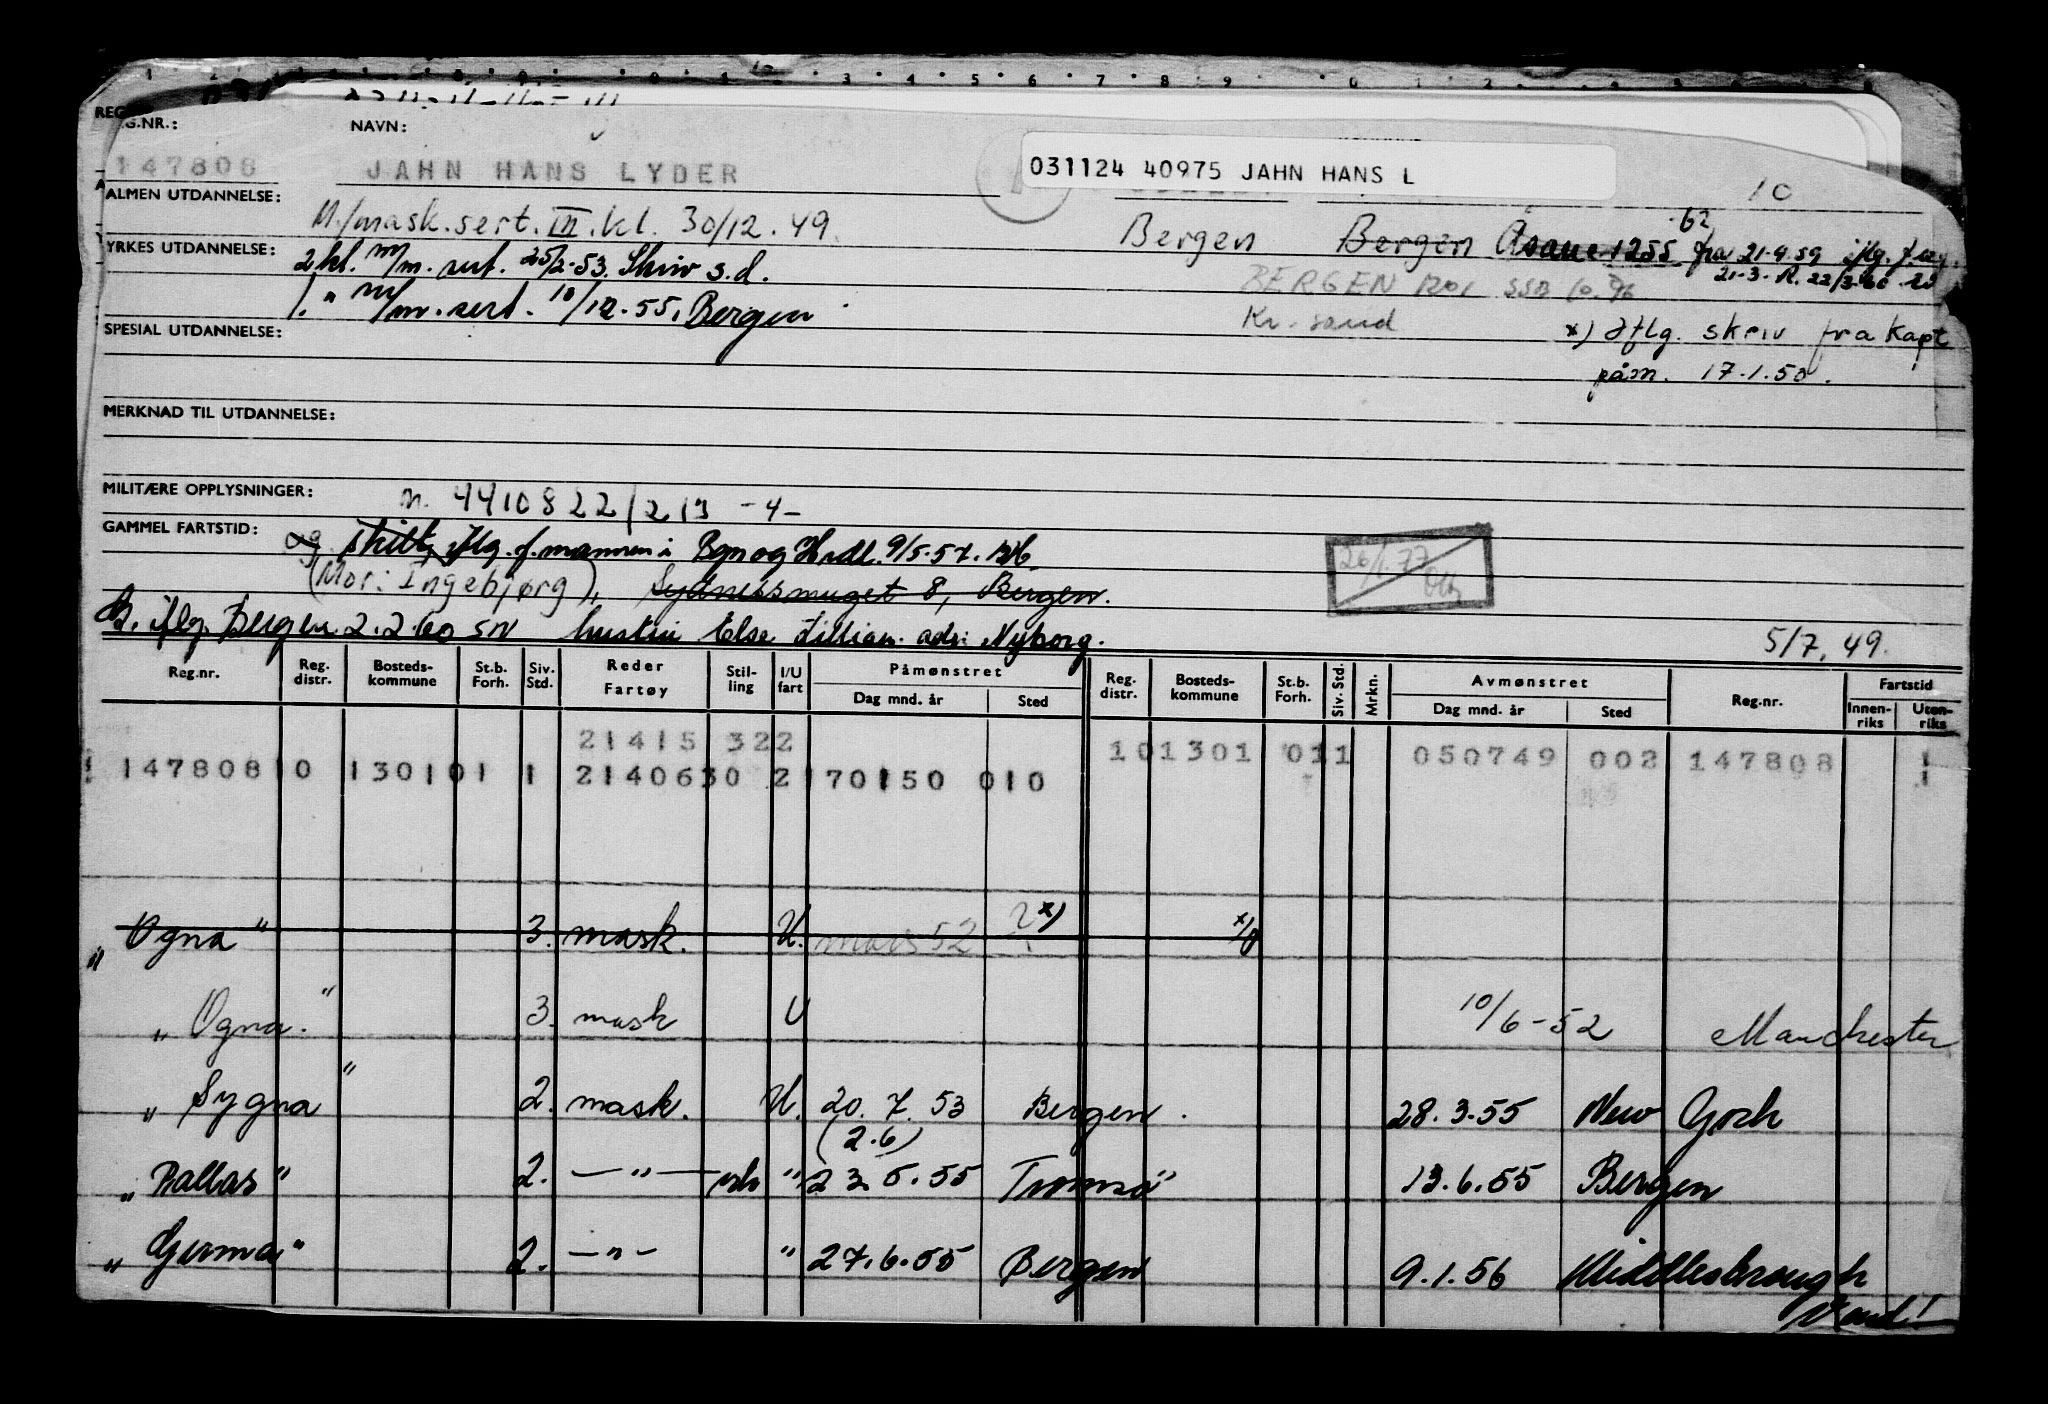 REG.NR.: NAVN:
147808 JAHN HANS LYDER
031124 40975 JAHN HANS L
10
ALMEN UTDANNELSE:
M/mask.sert. III. kl. 30/12.49. Bergen Bergen Åsane 1255 fra 21.9.59 iflg.
62
21.3.
YRKES UTDANNELSE:
2 kl. m/m. sert. 25/2-53. Skriv s.d.
BERGEN 1201 SSB 10.96
1. " m/m. sert. 10/12.55, Bergen
Kr. sand
SPESIAL UTDANNELSE:
x) Iflg. skriv fra Kapt
påm. 17.1.50.
MERKNAD TIL UTDANNELSE:
MILITÆRE OPPLYSNINGER: n. 4410822/213 -4-
GAMMEL FARTSTID:
og skilt, iflg. f.mannen i Bgn og Hrdl. 9/5.57.
(Mor: Ingebjørg), Sydnessmuget 8, Bergen.
26/1.77
G. iflg. Bergen 2.2.60 SN hustru Else Lillian. adr: Nyborg.
5/7.49.
Reg.nr. Reg. distr. Bosteds-kommune St.b. Forh. Siv. Std. Reder Fartøy Stil-ling I/U fart Påmønstret Dag mnd. år Sted Reg. distr. Bosteds-kommune St.b. Forh. Siv. Std. Mrkn. Avmønstret Dag mnd. år Sted Reg.nr. Fartstid Innen-riks Uten-riks
21415 322 101301 011 050749 002 147808 1
147808 10 1301 01 1 21406 30 2 170150 010 1
"Ogna" 3. mask. U. mars 52 ? x) x)
"Ogna." 3. mask U 10/6-52 Manchester
"Sygna" 2. mask. U. 20.7.53 Bergen. 28.3.55 New York
(2.6)
"Pallas" 2. —"— " 23.5.55 Tromsø 13.6.55 Bergen
"Germa" 2. —"— " 27.6.55 Bergen 9.1.56 Middlesbrough
Vend!